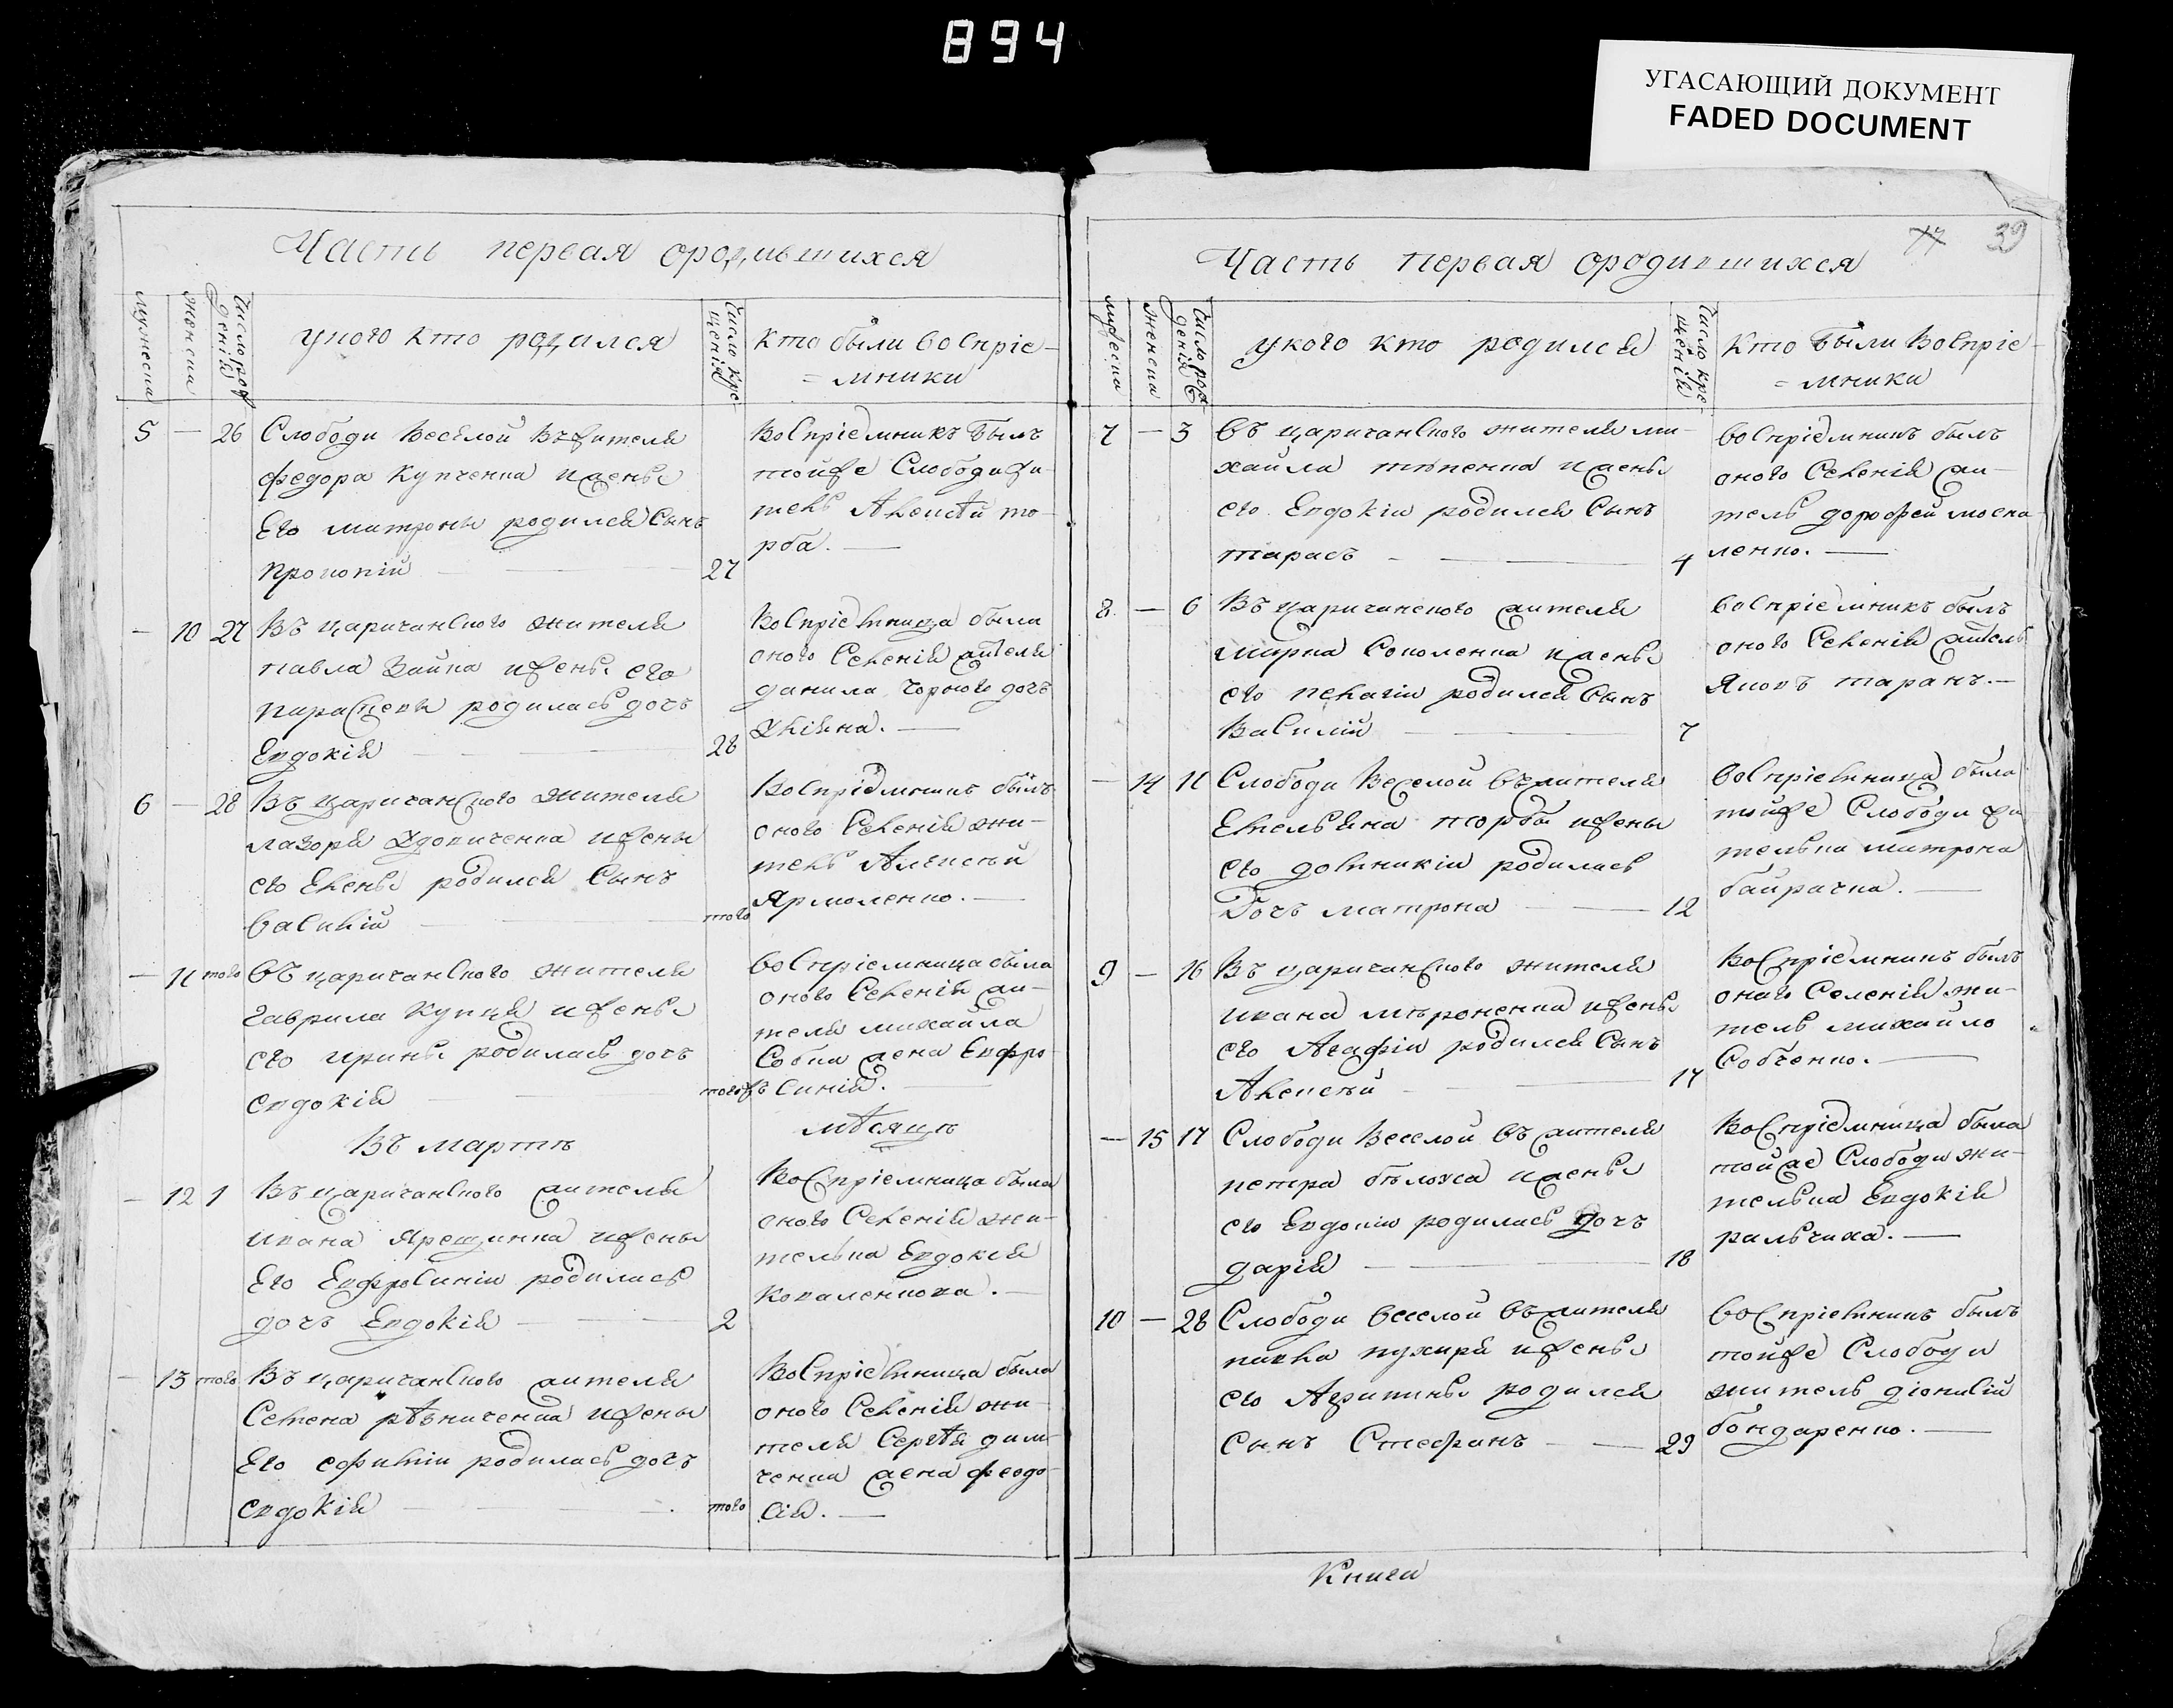 894
УГАСАЮЩИЙ ДОКУМЕНТ
FADED DOCUMENT
Часть первая ородившихся
мужеска
женска
Число рождения
укого кто родился
Число крещенія
кто были воспріе-
=мники
5 — 26 Слободи Веселой въжителя
федора Купченка ижены
Его матроны родился Сынъ
прокопій 27
Воспріемникъ былъ
тойже Слободижи-
тель Алексѣй то-
рба.
— 10 27 Въ царичанского жителя
павла Заика ижены его
параскевы родилась дочъ
Евдокія 28
Воспріемница была
оного Селенія жителя
данила Чорного дочъ
6 — 28 Въ царичанского жителя
лазоря ижены
его Елены родился Сынъ
василій того
Воспріемникъ былъ
оного Селенія жи-
тель Алексѣй
Ярмоленко.
— 11 того въ царичанского жителя
гаврила Купця ижены
его ирины родилась дочъ
евдокія тогожъ
воспріемница была
оного Селенія жи-
теля михайла
Собка жена Евфро-
синія.
Въ мартѣ мѣсяцѣ
— 12 1 Въ царичанского жителя
ивана Ярещинка ижены
Его Евфросиніи родилась
дочъ Евдокія 2
Воспріемница была
оного Селенія жи-
телька Евдокія
коваленкова.
— 13 того Въ царичанского жителя
Семена рѣзниченка ижены
Его ефиміи родилась дочъ
евдокія того
Воспріемница была
оного Селенія жи-
теля Сергѣя дим-
ченка жена феодо-
сія.
17 39
Часть первая ородившихся
мужеска
женска
Число рождения
укого кто родился
Число крещенія
кто были воспріе-
=мники
7 — 3 въ царичанского жителя ми-
хайла ижены
его Евдокіи родился Сынъ
тарасъ 4
воспріемникъ былъ
оного Селенія жи-
тель дорофей моска-
ленко.
8 — 6 Въ царичанского жителя
марка Соколенка ижены
его пелагіи родился Сынъ
Василій 7
воспріемникъ былъ
оного Селенія житель
Яковъ таранъ.
— 14 11 Слободи Веселой въжителя
Емельяна торбы ижены
его домникіи родилась
Дочъ матрона 12
воспріемница была
тойже Слободи жи
телька матрона
байрачка.
9 — 16 Въ царичанского жителя
ивана мироненка ижены
его Агафіи родился Сынъ
Алексѣй 17
Воспріемникъ былъ
оного Селенія жи-
тель михайло
Собченко.
— 15 17 Слободи Веселой въ жителя
петра бѣлоха ижены
его Евдокіи родилась дочъ
дарія 18
Воспріемница была
тойже Слободи жи-
телька Евдокія
ральчиха.
10 — 28 Слободи веселой въжителя
павла пухиря ижены
его Агрипины родился
Сынъ Стефанъ 29
воспріемникъ былъ
тойже Слободи
житель діонисій
бондаренко.
Книги